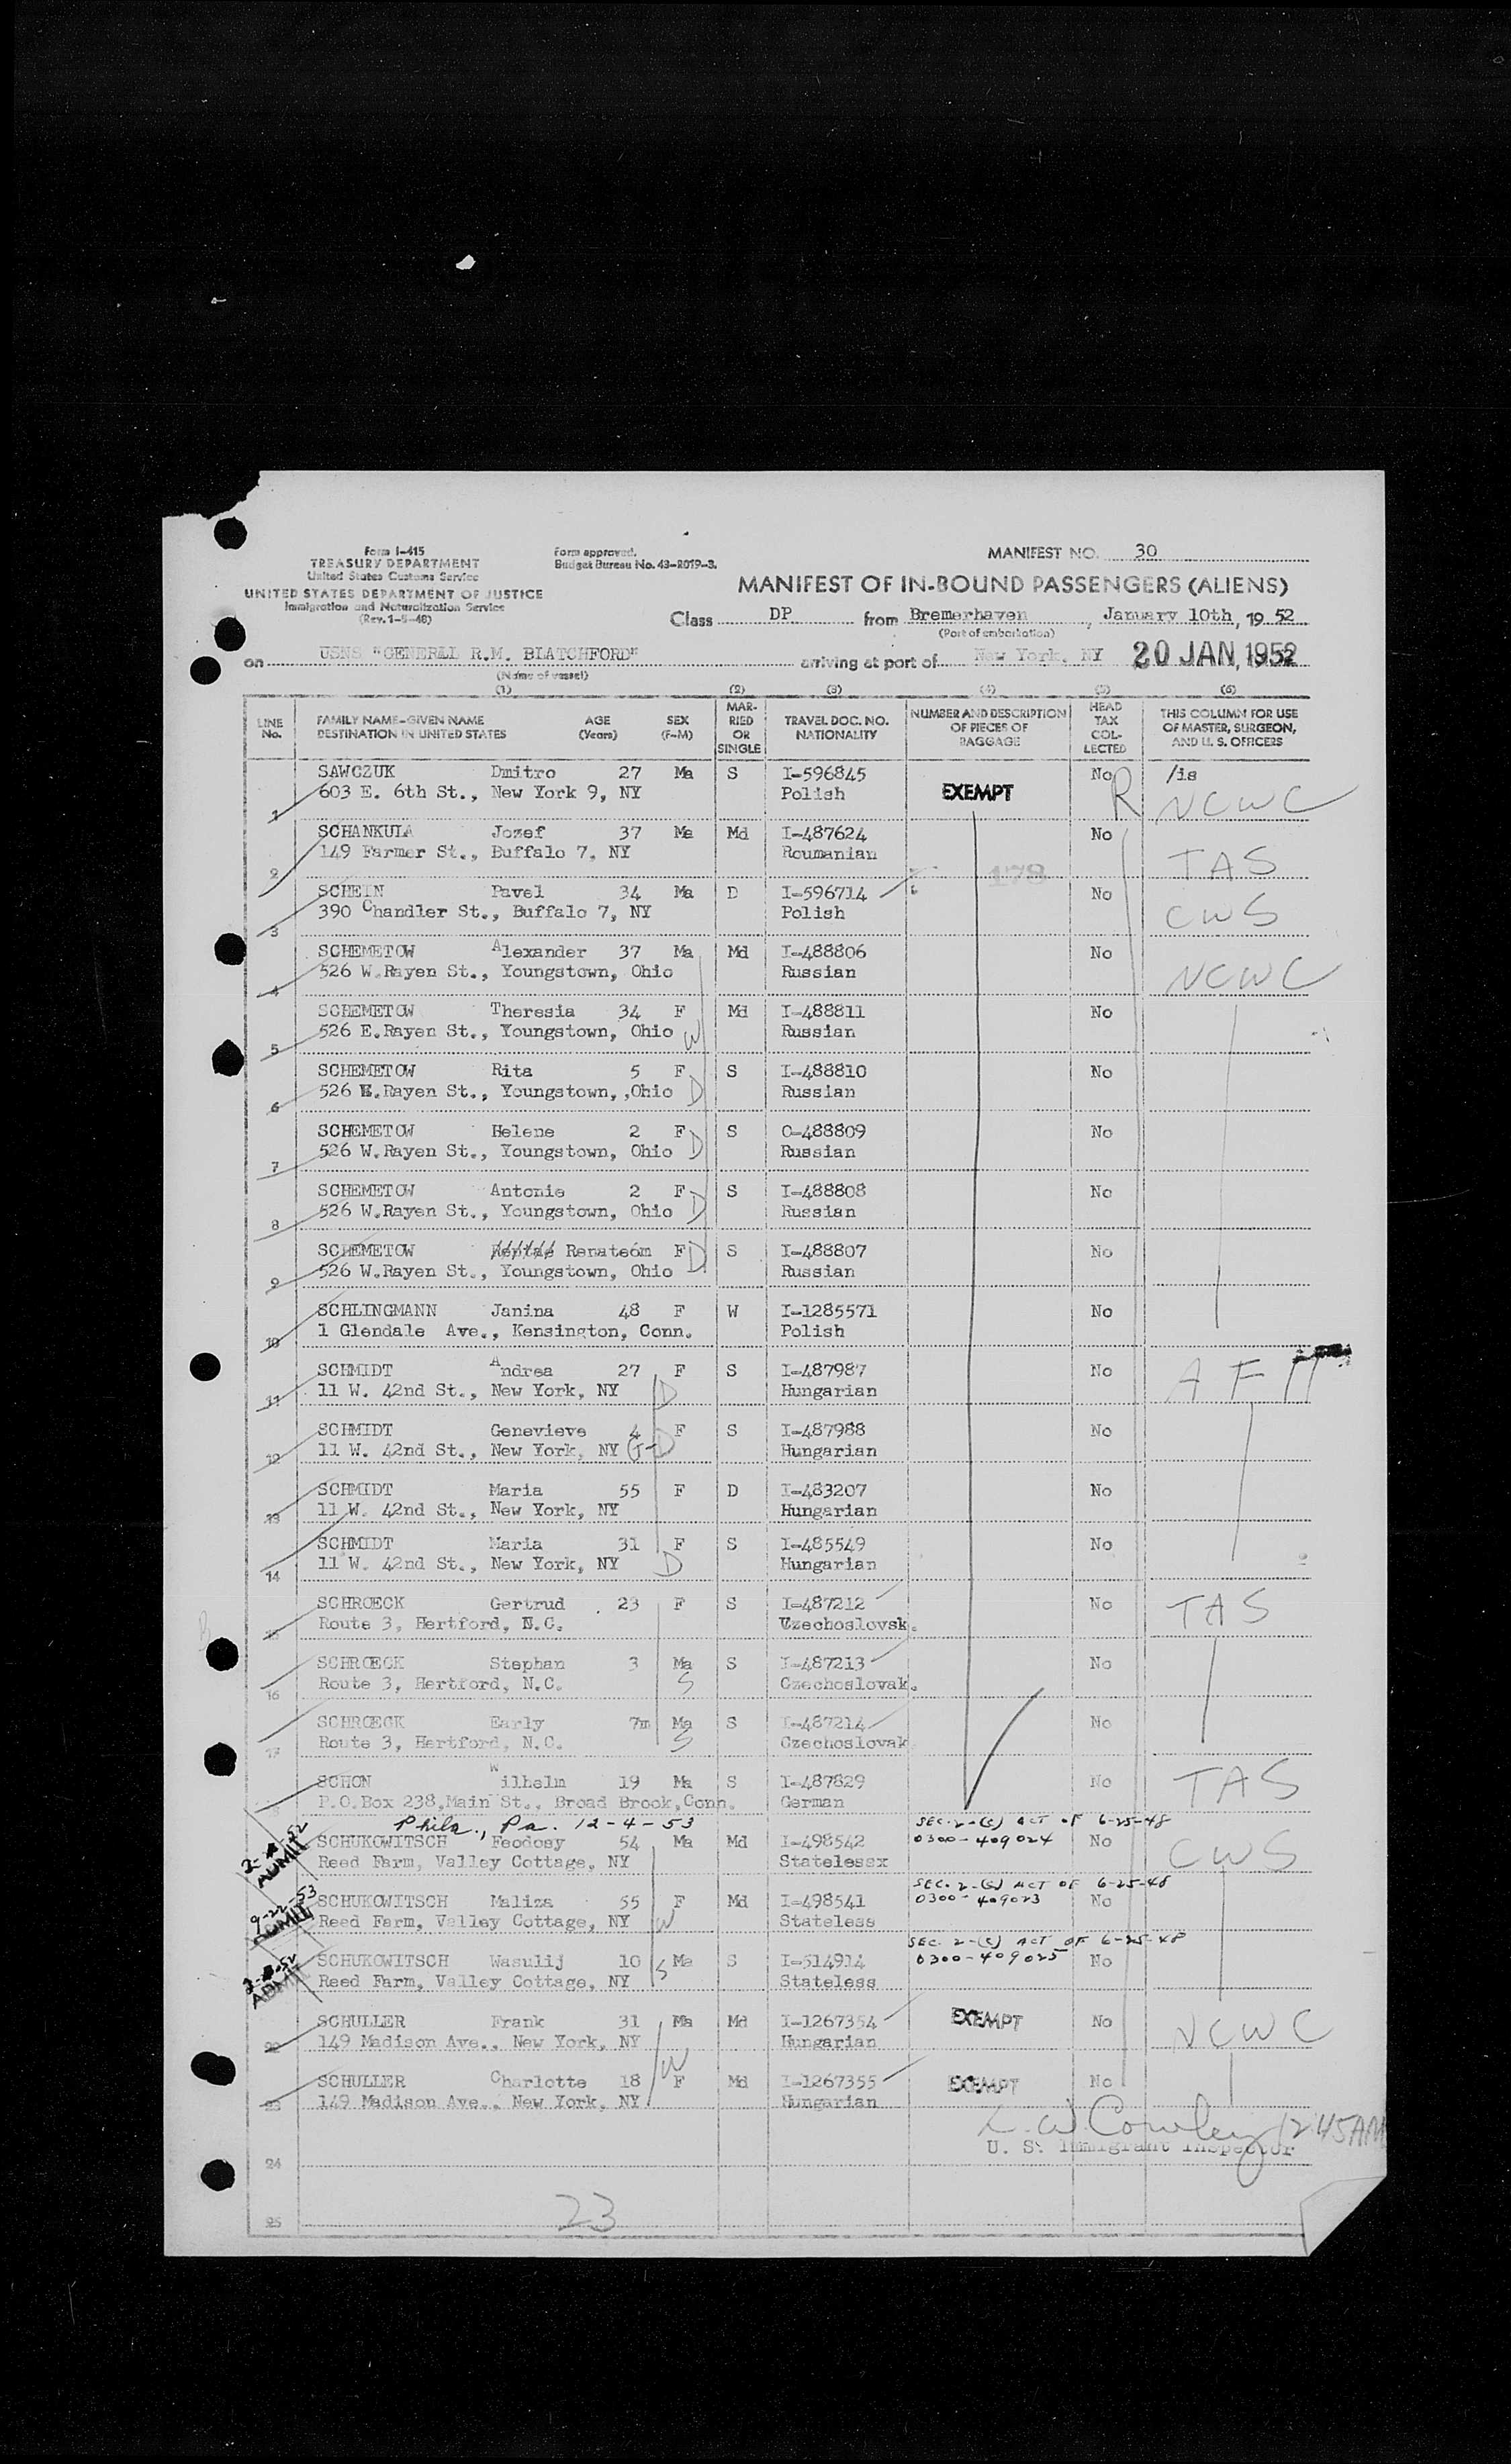 Form I-415
TREASURY DEPARTMENT
United States Customs Service
UNITED STATES DEPARTMENT OF JUSTICE
Immigration and Naturalization Service
(Rev. 1-5-48)
Form approved.
Budget Bureau No. 43-R019-3.
MANIFEST NO. 30
MANIFEST OF IN-BOUND PASSENGERS (ALIENS)
Class DP from Bremerhaven, January 10th, 19 52
(Port of embarkation)
on USNS "GENERAL R.M. BLATCHFORD" arriving at port of New York, NY 20 JAN, 1952
(Name of vessel)
(1) (2) (3) (4) (5) (6)
LINE No. FAMILY NAME-GIVEN NAME DESTINATION IN UNITED STATES AGE (Years) SEX (F-M) MARRIED OR SINGLE TRAVEL DOC. NO. NATIONALITY NUMBER AND DESCRIPTION OF PIECES OF BAGGAGE HEAD TAX COLLECTED THIS COLUMN FOR USE OF MASTER, SURGEON, AND U. S. OFFICERS
SAWCZUK Dmitro 27 Ma S I-596845 No /is
1 603 E. 6th St., New York 9, NY Polish EXEMPT R NCWC
SCHANKULA Jozef 37 Ma Md I-487624 No
2 149 Farmer St., Buffalo 7, NY Roumanian TAS
178
SCHEIN Pavel 34 Ma D I-596714 No
3 390 Chandler St., Buffalo 7, NY Polish CWS
SCHEMETOW Alexander 37 Ma Md I-488806 No
4 526 W.Rayen St., Youngstown, Ohio Russian NCWC
SCHEMETOW Theresia 34 F Md I-488811 No
5 526 E.Rayen St., Youngstown, Ohio W Russian
SCHEMETOW Rita 5 F S I-488810 No
6 526 W.Rayen St., Youngstown, ,Ohio D Russian
SCHEMETOW Helene 2 F S O-488809 No
7 526 W.Rayen St., Youngstown, Ohio D Russian
SCHEMETOW Antonie 2 F S I-488808 No
8 526 W.Rayen St., Youngstown, Ohio D Russian
SCHEMETOW Renate6m F D S I-488807 No
9 526 W.Rayen St., Youngstown, Ohio Russian
SCHLINGMANN Janina 48 F W I-1285571 No
10 1 Glendale Ave., Kensington, Conn. Polish
SCHMIDT Andrea 27 F S I-487987 No
11 11 W. 42nd St., New York, NY D Hungarian
SCHMIDT Genevieve 4 F S I-487988 No
12 11 W. 42nd St., New York, NY G-D Hungarian
SCHMIDT Maria 55 F D I-483207 No
13 11 W. 42nd St., New York, NY Hungarian
SCHMIDT Maria 31 F S I-485549 No
14 11 W. 42nd St., New York, NY D Hungarian
SCHROECK Gertrud 23 F S I-487212 No TAS
15 Route 3, Hertford, N.C. Czechoslovak.
SCHROECK Stephan 3 Ma S I-487213 No
16 Route 3, Hertford, N.C. S Czechoslovak.
SCHROECK Early 7m Ma S I-487214 No
17 Route 3, Hertford, N.C. S Czechoslovak
SCHON Wilhelm 19 Ma S I-487829 No TAS
P.O.Box 238,Main St., Broad Brook,Conn. German
Phila., Pa. 12-4-53 SEC. 2-(c) ACT OF 6-25-48
SCHUKOWITSCH Feodosy 54 Ma Md I-498542 0300-409024 No
ADMIT Reed Farm, Valley Cottage, NY Statelessx CWS
SEC. 2-(c) ACT OF 6-25-48
9-22-53 SCHUKOWITSCH Maliza 55 F Md I-498541 0300-409023 No
ADMIT Reed Farm, Valley Cottage, NY W Stateless
SEC. 2-(c) ACT OF 6-25-48
SCHUKOWITSCH Wasulij 10 Ma S I-514914 0300-409025 No
ADMIT Reed Farm, Valley Cottage, NY S Stateless
SCHULLER Frank 31 Ma Md I-1267354 EXEMPT No
22 149 Madison Ave., New York, NY Hungarian NCWC
SCHULLER Charlotte 18 W F Md I-1267355 EXEMPT No
23 149 Madison Ave., New York, NY Hungarian
L. W. Cowley 12 45 AM
U. S. Immigrant Inspector
24
23
25